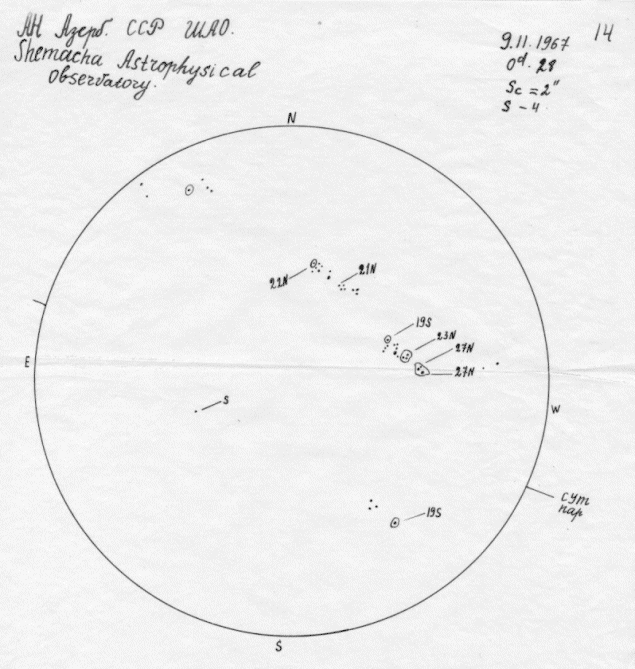 АН Азерб. ССР ШАО.
Shemacha Astrophysical
Observatory.
14
9.11.1967
0d. 28
Sc = 2"
S - 4
N
22N
21N
19S
23N
27N
27N
E
S
W
сут
пар
19S
S